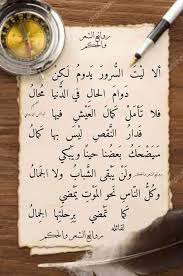 روائع الشعر
والحكم
ألا ليت السرور يدوم لكن
دوام الحال في الدنيا محال
فلا تأمل كمال العيش فيها
فدار النقص ليس بها كمال
سيضحك بعضنا حينا ويبكي
ولن يبقى الشباب ولا الجمال
وكل الناس نحو الموت يمضي
كما تمضي برحلتها الجمال
لقائله
روائع الشعر والحكم